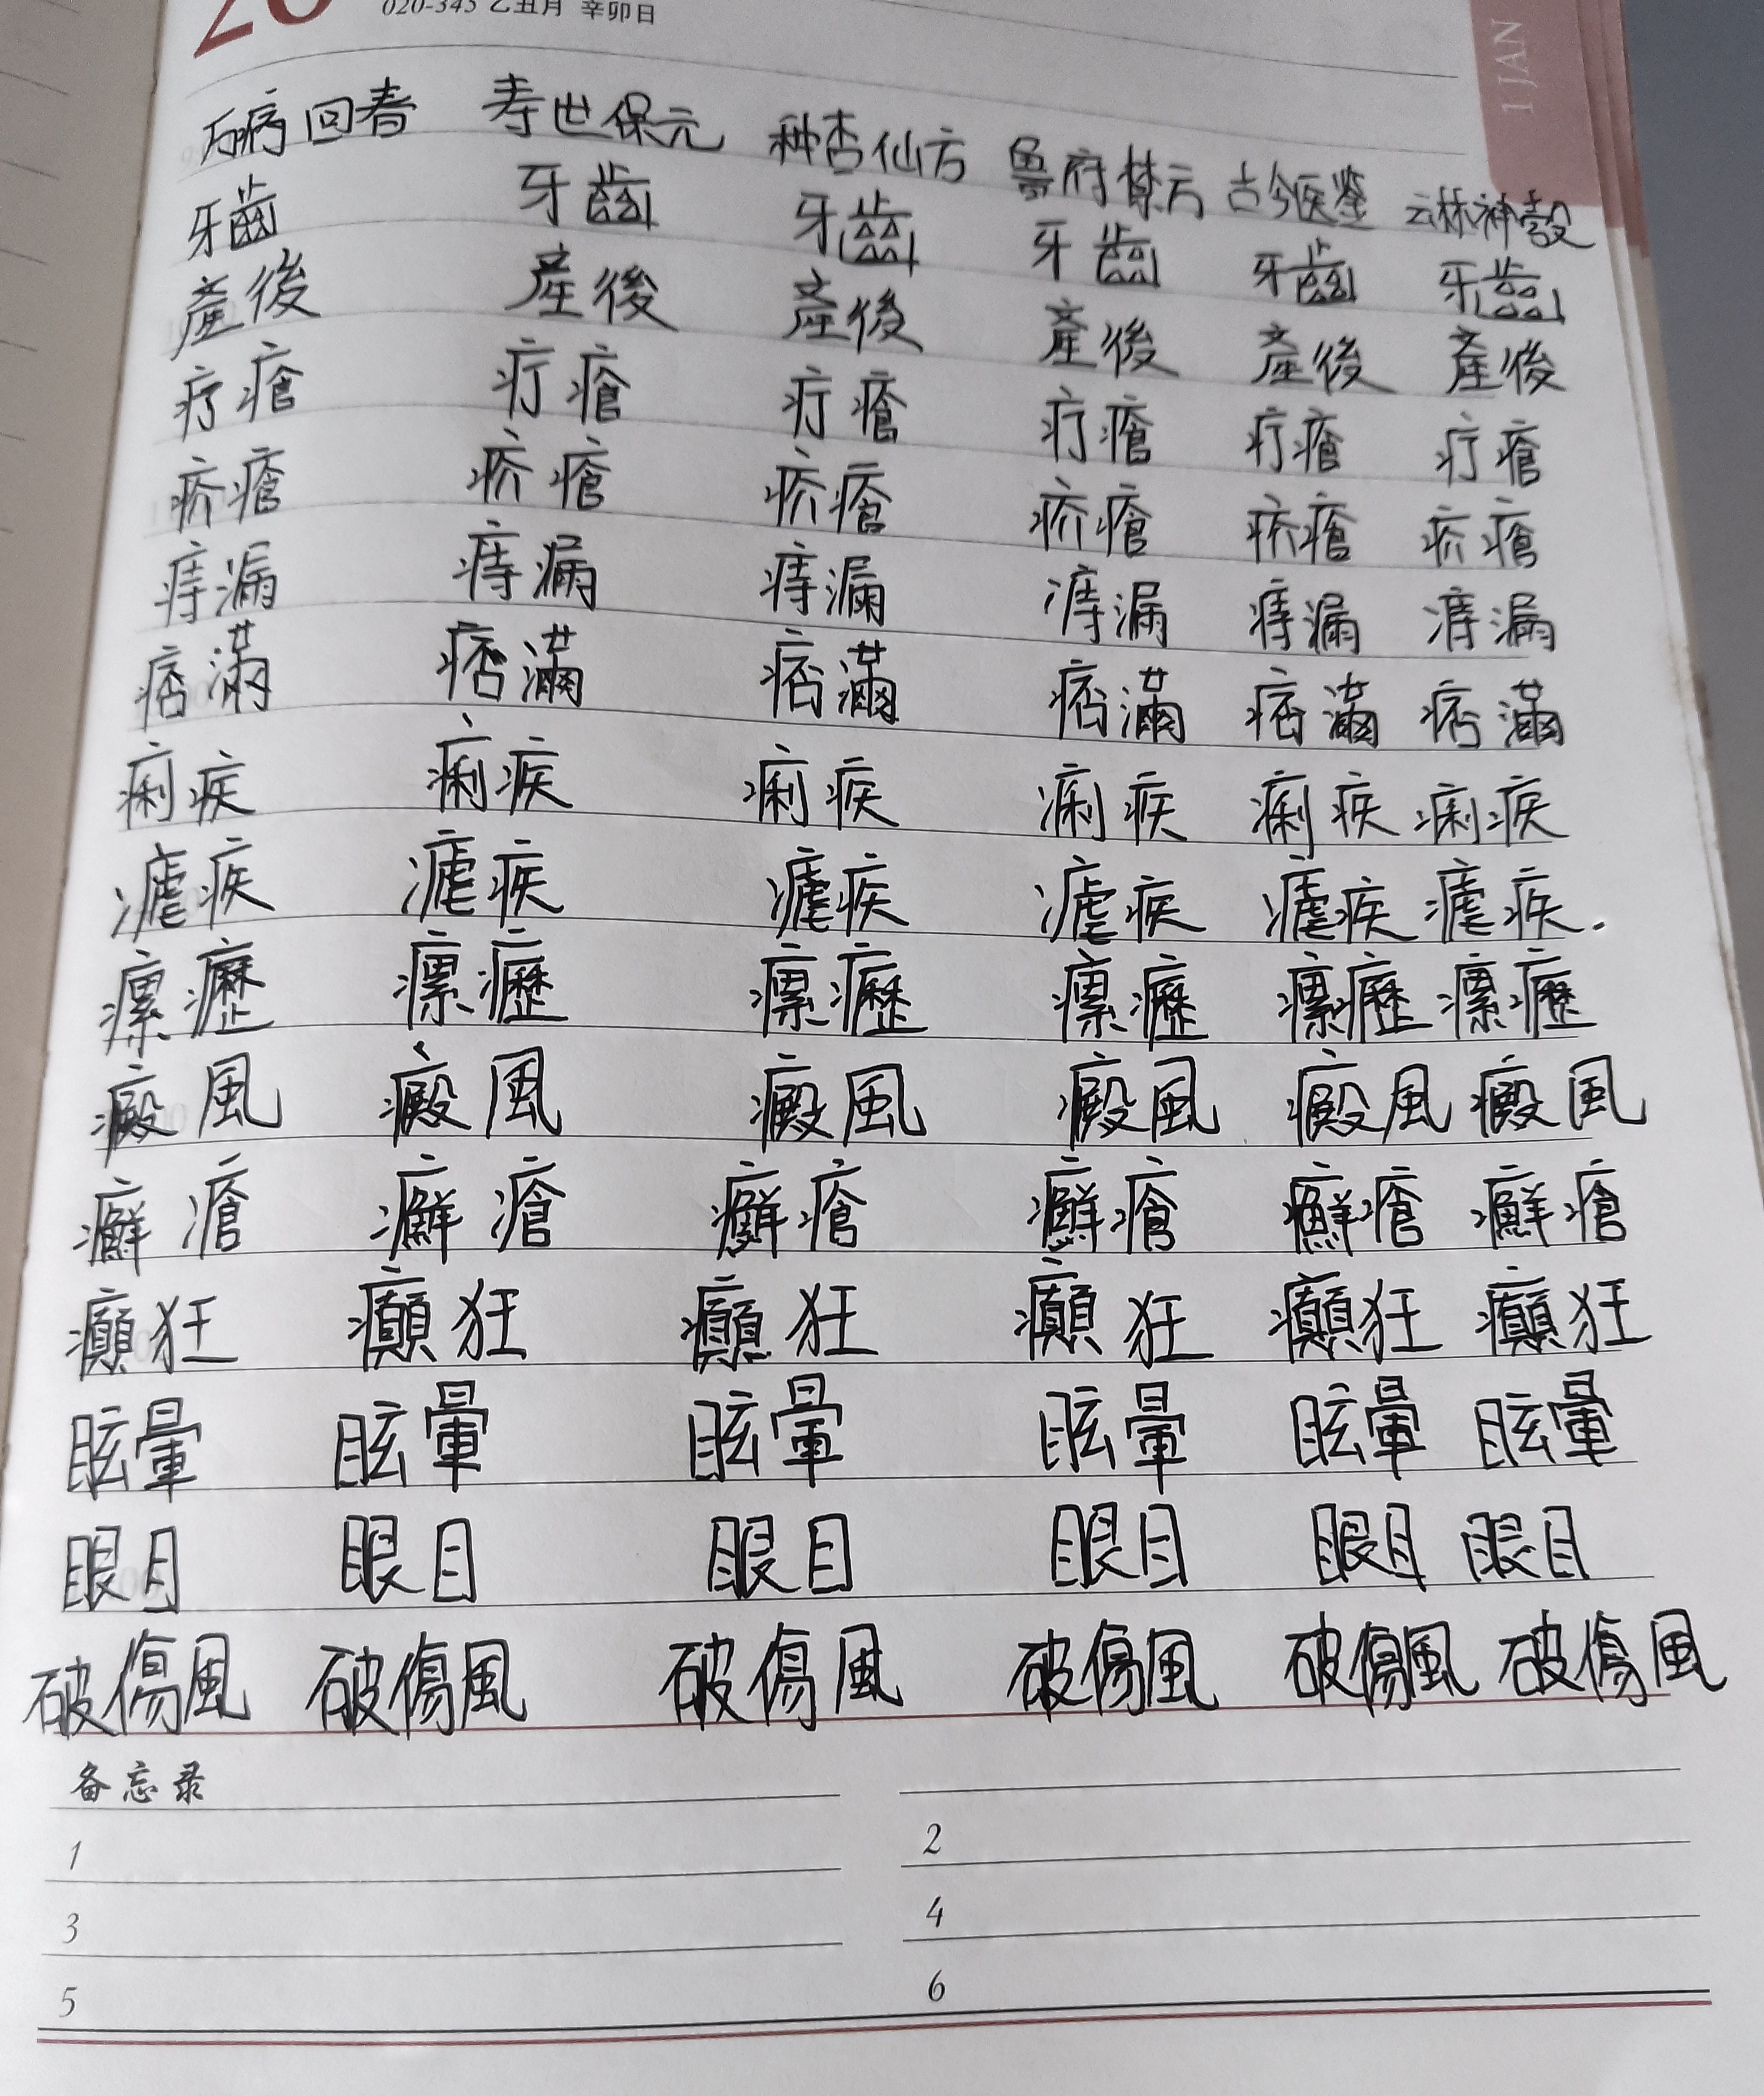 020-345 乙丑月 辛卯日
1 JAN
万病回春 寿世保元 种杏仙方 鲁府禁方 古今医鉴 云林神彀
牙齒 牙齒 牙齒 牙齒 牙齒 牙齒
產後 產後 產後 產後 產後 產後
疔瘡 疔瘡 疔瘡 疔瘡 疔瘡 疔瘡
疥瘡 疥瘡 疥瘡 疥瘡 疥瘡 疥瘡
痔漏 痔漏 痔漏 痔漏 痔漏 痔漏
痞滿 痞滿 痞滿 痞滿 痞滿 痞滿
痢疾 痢疾 痢疾 痢疾 痢疾 痢疾
瘧疾 瘧疾 瘧疾 瘧疾 瘧疾 瘧疾.
瘰癧 瘰癧 瘰癧 瘰癧 瘰癧 瘰癧
癜風 癜風 癜風 癜風 癜風 癜風
癬瘡 癬瘡 癬瘡 癬瘡 癬瘡 癬瘡
癲狂 癲狂 癲狂 癲狂 癲狂 癲狂
眩暈 眩暈 眩暈 眩暈 眩暈 眩暈
眼目 眼目 眼目 眼目 眼目 眼目
破傷風 破傷風 破傷風 破傷風 破傷風 破傷風
备忘录
1 2
3 4
5 6